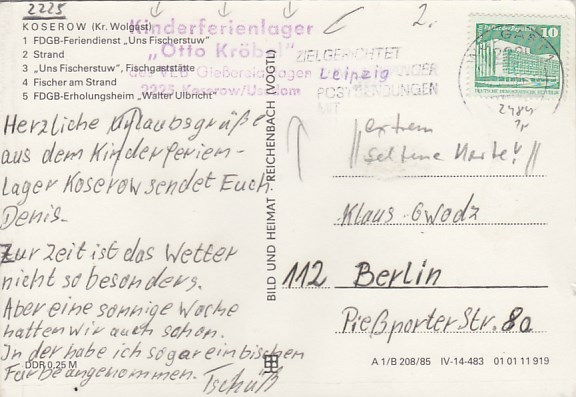 2225
KOSEROW (Kr. Wolgast)
1 FDGB-Feriendienst „Uns Fischerstuw"
2 Strand
3 „Uns Fischerstuw", Fischgaststätte
4 Fischer am Strand
5 FDGB-Erholungsheim „Walter Ulbricht"
Kinderferienlager
„Otto Kröbel"
des VEB Gießereianlagen Leipzig
2225 Koserow/Usedom
2.
ZIELGERICHTET
POSTSENDUNGEN
MIT
10
2484
Herzliche Urlaubsgrüße
aus dem Kinderferien-
lager Koserow sendet Euch
Denis.
Zur Zeit ist das Wetter
nicht so besonders.
Aber eine sonnige Woche
hatten wir auch schon.
In der habe ich sogar ein bischen
Farbe angenommen. Tschüß
BILD UND HEIMAT REICHENBACH (VOGTL)
"extrem
seltene Karte!"
Klaus Gwodz
112 Berlin
Pießporter Str. 8a
DDR 0,25 M
A 1/B 208/85 IV-14-483 01 01 11 919